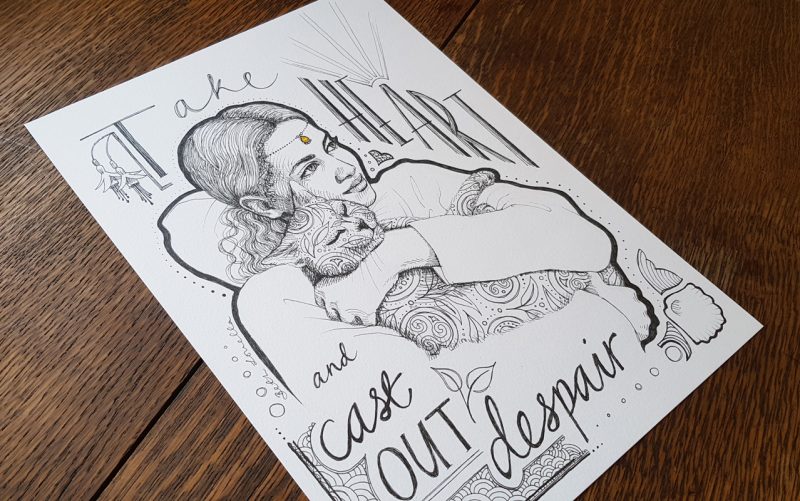 Take
HEART
and
cast
OUT
despair